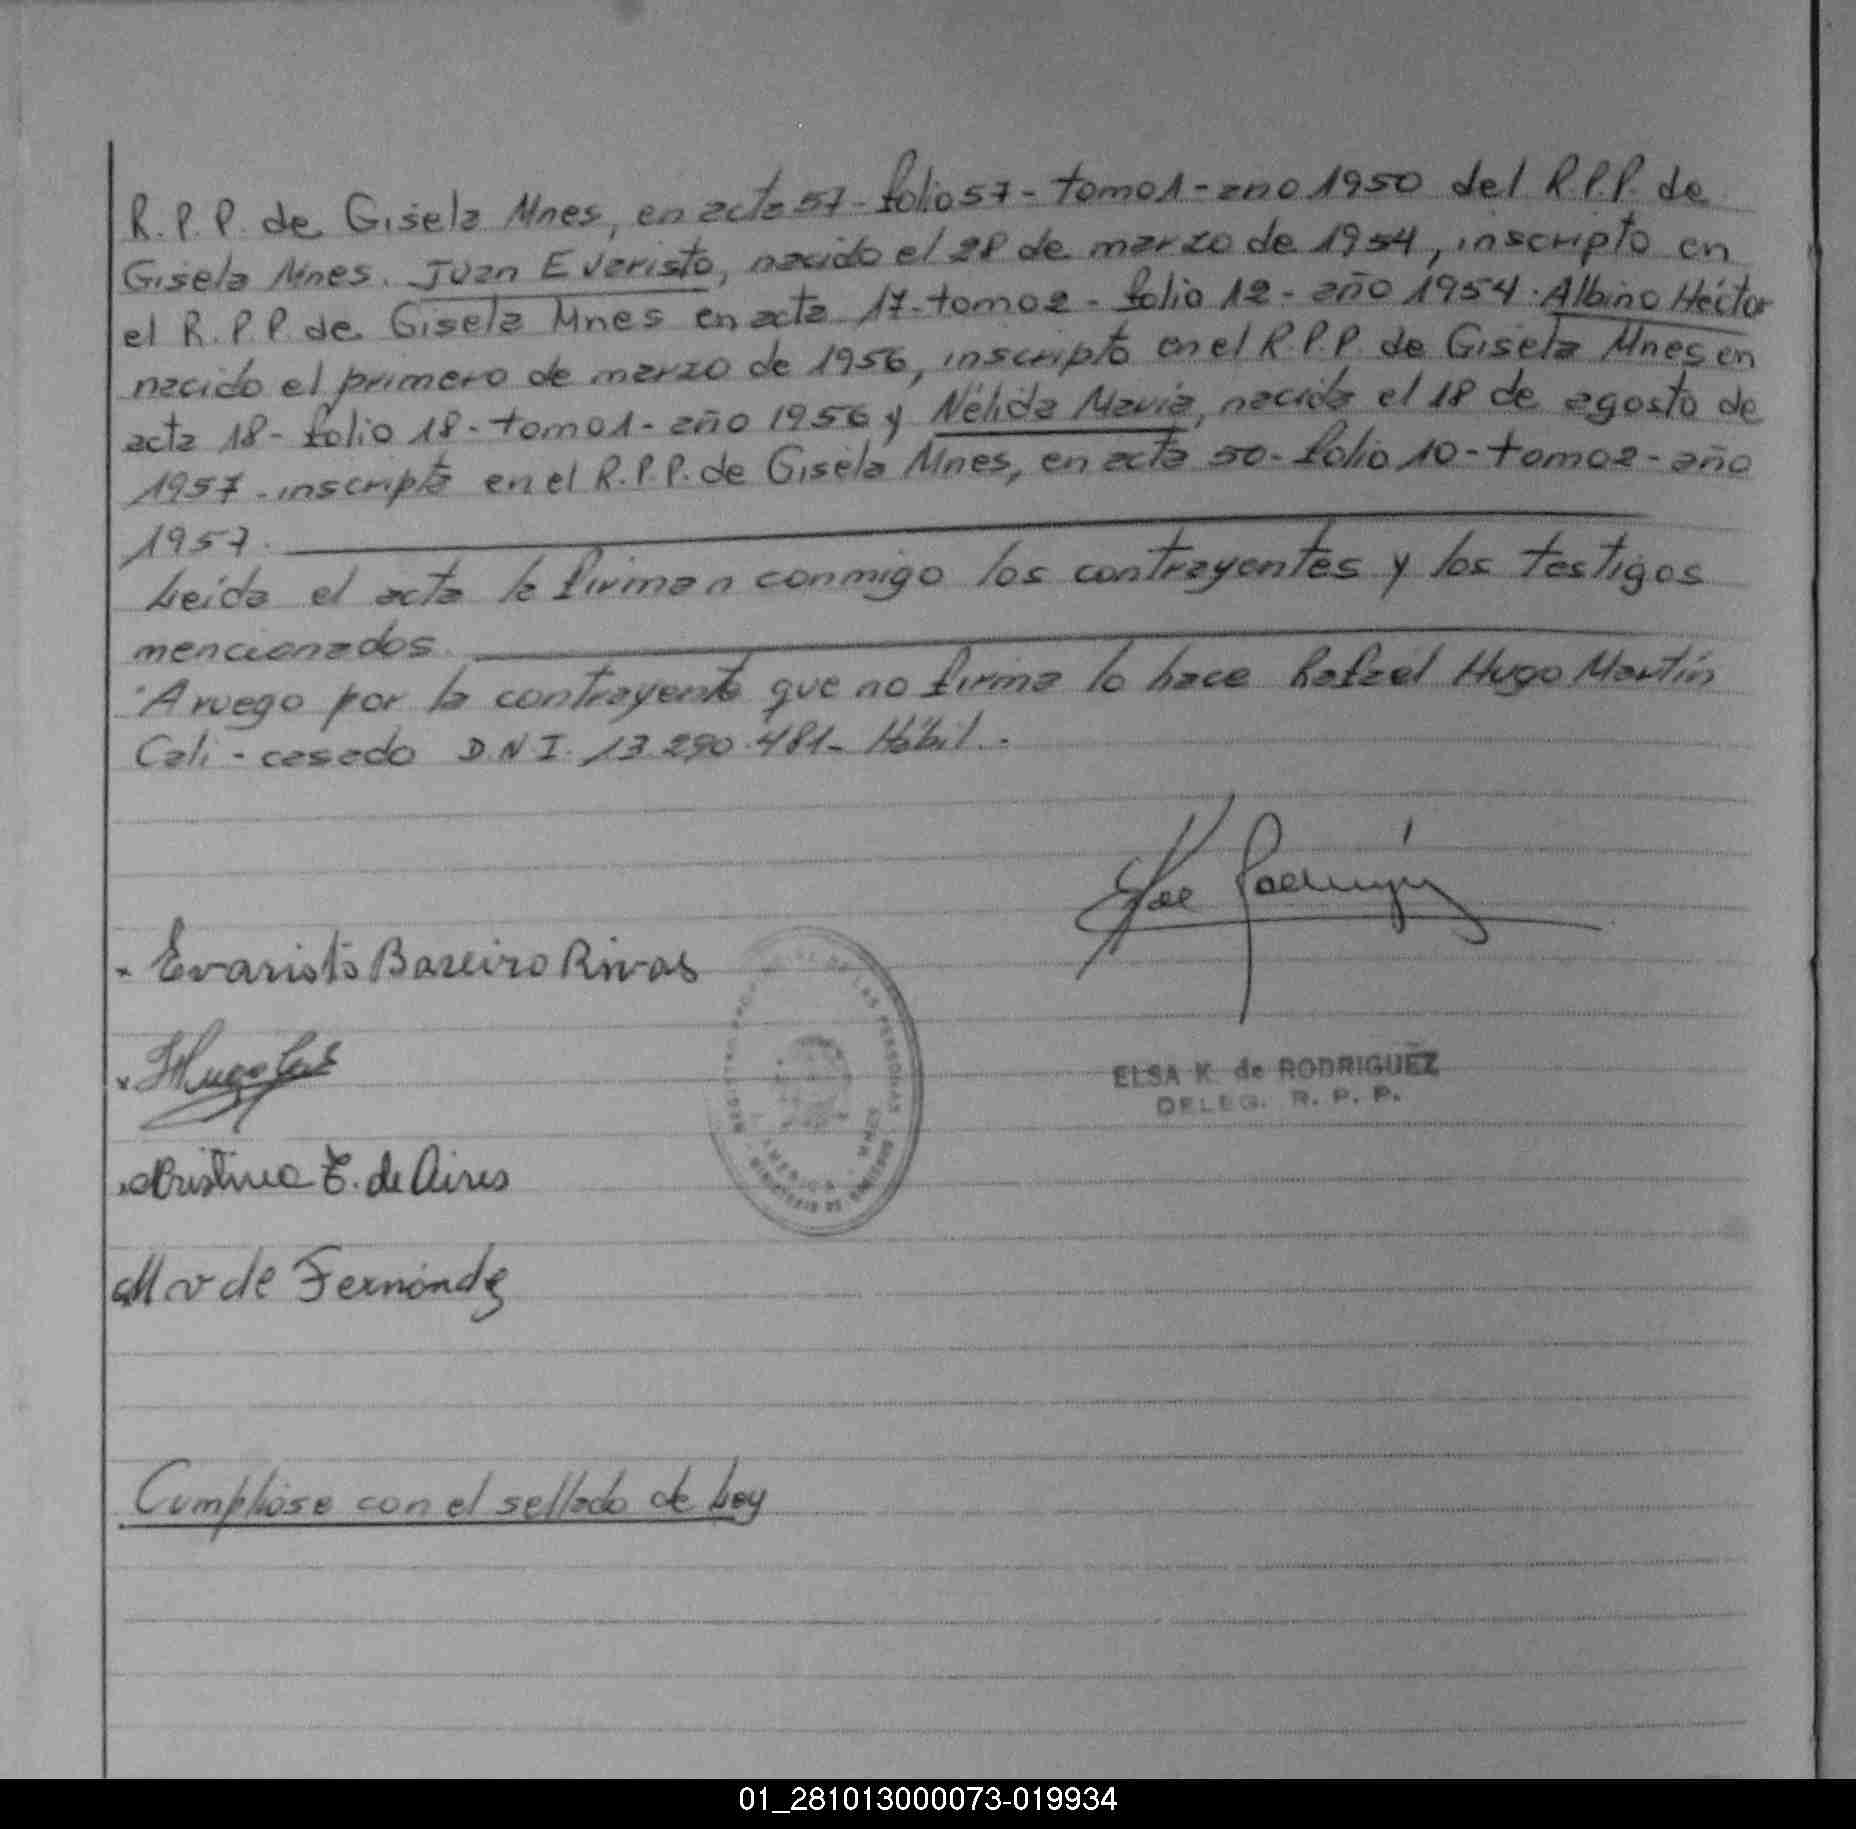 R.P.P. de Gisela Mnes, en acta 57 - folio 57 - tomo 1 - año 1950 del R.P.P. de
Gisela Mnes. Juan Evaristo, nacido el 28 de marzo de 1954, inscripto en
el R.P.P. de Gisela Mnes en acta 17 - tomo 2 - folio 12 - año 1954. Albino Héctor
nacido el primero de marzo de 1956, inscripto en el R.P.P. de Gisela Mnes en
acta 18 - folio 18 - tomo 1 - año 1956 y Nélida María, nacida el 18 de agosto de
1957 - inscripta en el R.P.P. de Gisela Mnes, en acta 50 - folio 10 - tomo 2 - año
1957.
Leída el acta la firman conmigo los contrayentes y los testigos
mencionados.
A ruego por la contrayente que no firma lo hace Rafael Hugo Martín
Cali - casado D.N.I. 13.290.481 - Hábil.-
Evaristo Bareiro Rivas
ELSA K. de RODRIGUEZ
DELEG. R. P. P.
Cristina E. de Aires
M v de Fernández
DE LAS PERSONAS
Cumplióse con el sellado de Ley
01_281013000073-019934